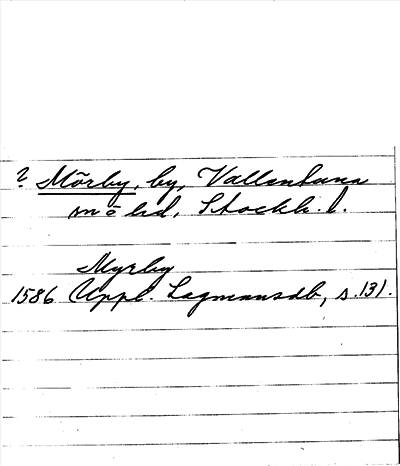 ? Mörby, by, Vallentuna
sn o hd, Stockh. l.
Myrby
1586 Uppl. Lagmansdb, s. 131.